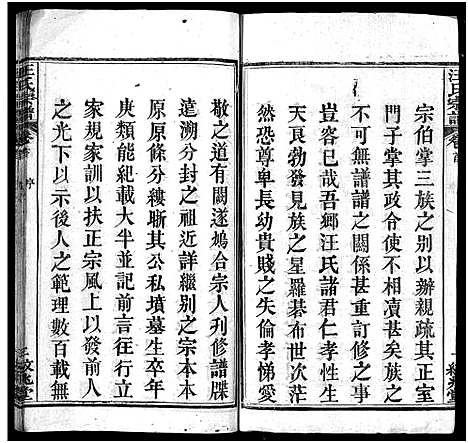 汪氏宗譜
卷首
宗伯掌三族之别以辦親疏其正室
門子掌其政令使不相凟甚矣族之
不可無譜譜之關係甚大重訂修之事
豈容已哉吾鄉汪氏諸君仁孝性生
天良勃發見族之星羅碁布世次茫
然恐尊卑長幼貴賤之失倫孝悌愛
敬之道有闕遂鳩合宗人刋修譜牒
遠溯分封之祖近詳繼别之宗本本
原原條分縷晣其公私墳墓生卒年
庚類能紀載大半並記前言往行立
家規家訓以扶正宗風上以發前人
之光下以示後人之範理數百載無
汪氏宗譜
卷首
序